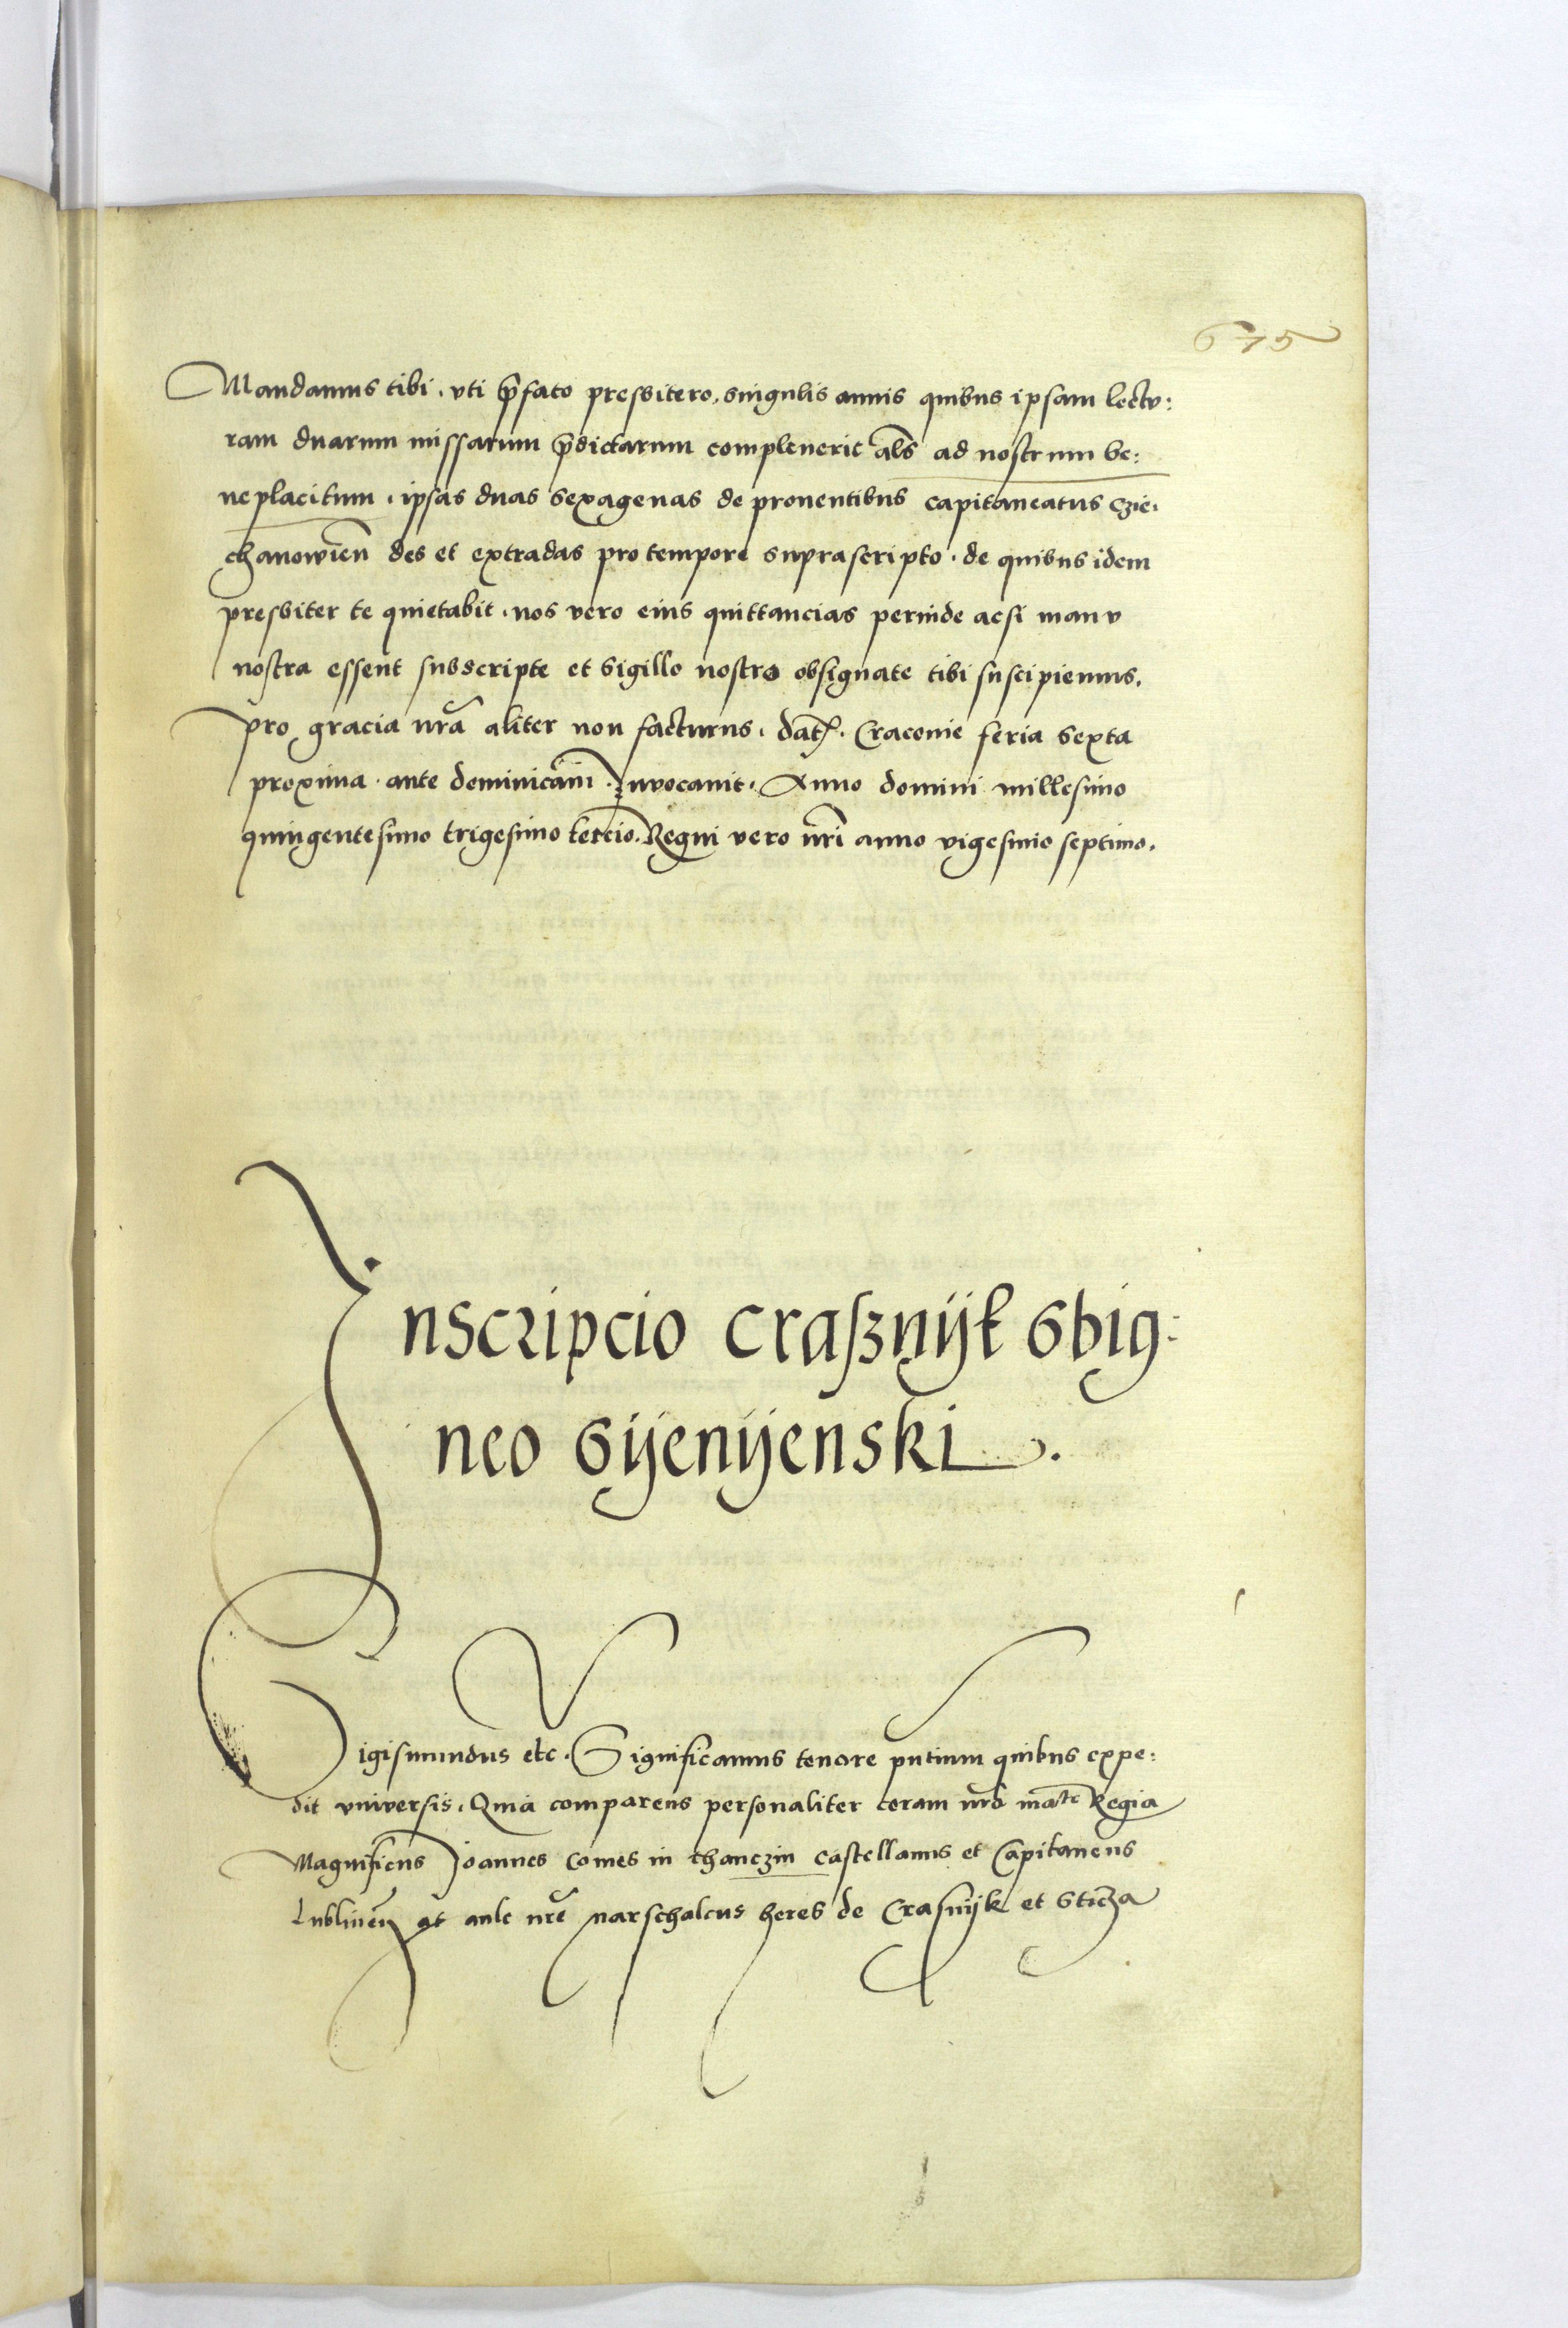 675
Mandamus tibi, vti p̄fato presbitero, singulis annis quibus ipsam lectu:
ram duarum missarum p̄dictarum compleuerit al̄s ad nostrum be:
neplacitum, ipsas duas sexagenas de prouentibus capitaneatus Czie,
chanowień des et extradas pro tempore suprascripto, de quibus idem
presbiter te quietabit, nos vero eius quittancias perinde acsi manu
nostra essent subscripte et sigillo nostro obsignate tibi suscipiemus,
pro gracia nr̄a aliter non facturus, dat̄. Craconie feria sexta
proxima ante dominicam Inuocauit, Anno domini millesimo
quingentesimo trigesimo tercio. Regni vero nr̄i anno vigesimo septimo.
Inscripcio Craßnijk Sbig:
neo Sijenijenski.
Sigismundus etc. Significamus tenore pn̄tium quibus expe:
dit vniversis, Quia comparens personaliter coram nr̄a matē Regia
Magnificus Joannes Comes in Thanczin Castellanus et Capitaneus
Lublineñ at aule nr̄e Marschalcus heres de Crasnijk et Sticza